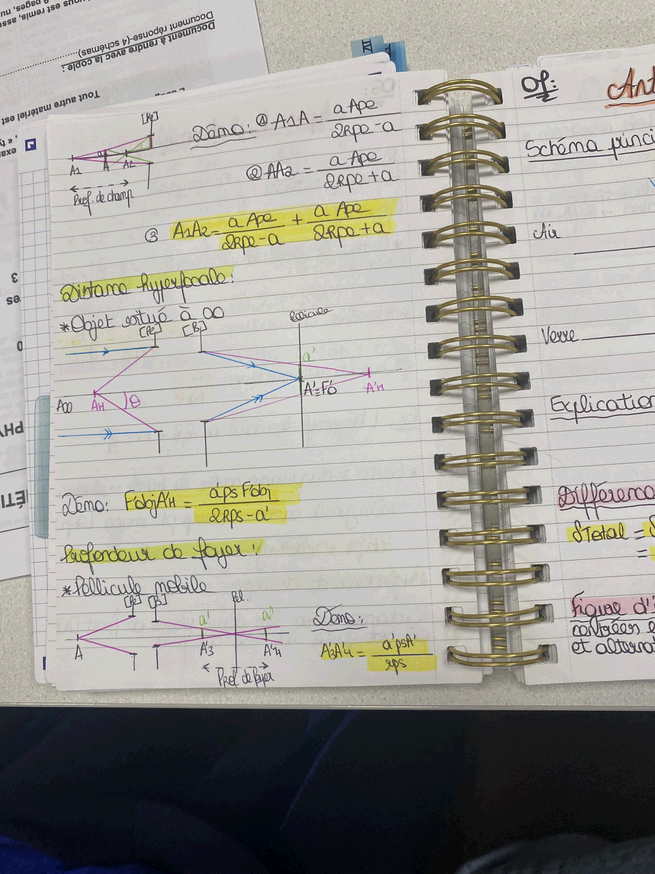 Document à rendre avec la copie :
Document réponse-(4 schémas)
Tout autre matériel est
[Pe]
A1 A A2
Prof. de champ
Démo: ① A1A = a Ape / 2Rpe-a
② AA2 = a Ape / 2Rpe+a
③ A1A2 = a Ape / 2Rpe-a + a Ape / 2Rpe+a
Distance hyperfocale:
*Objet situé à ∞
[Pe] [Ps] Pellicule
a'
A∞ AH θ A'≡F'o A'H
Démo: F'objA'H = a'ps F'obj / 2Rps-a'
Profondeur de foyer:
*Pellicule mobile
[Pe] [Ps] Pel
a' a'
A A'3 A'4
Prof de foyer
Démo:
A'3A'4 = a'psA' / rps
OP:
Schéma princi
Air
Verre
Explication
Différence
δTotal =
=
Figure d'i
centrées
et alterna